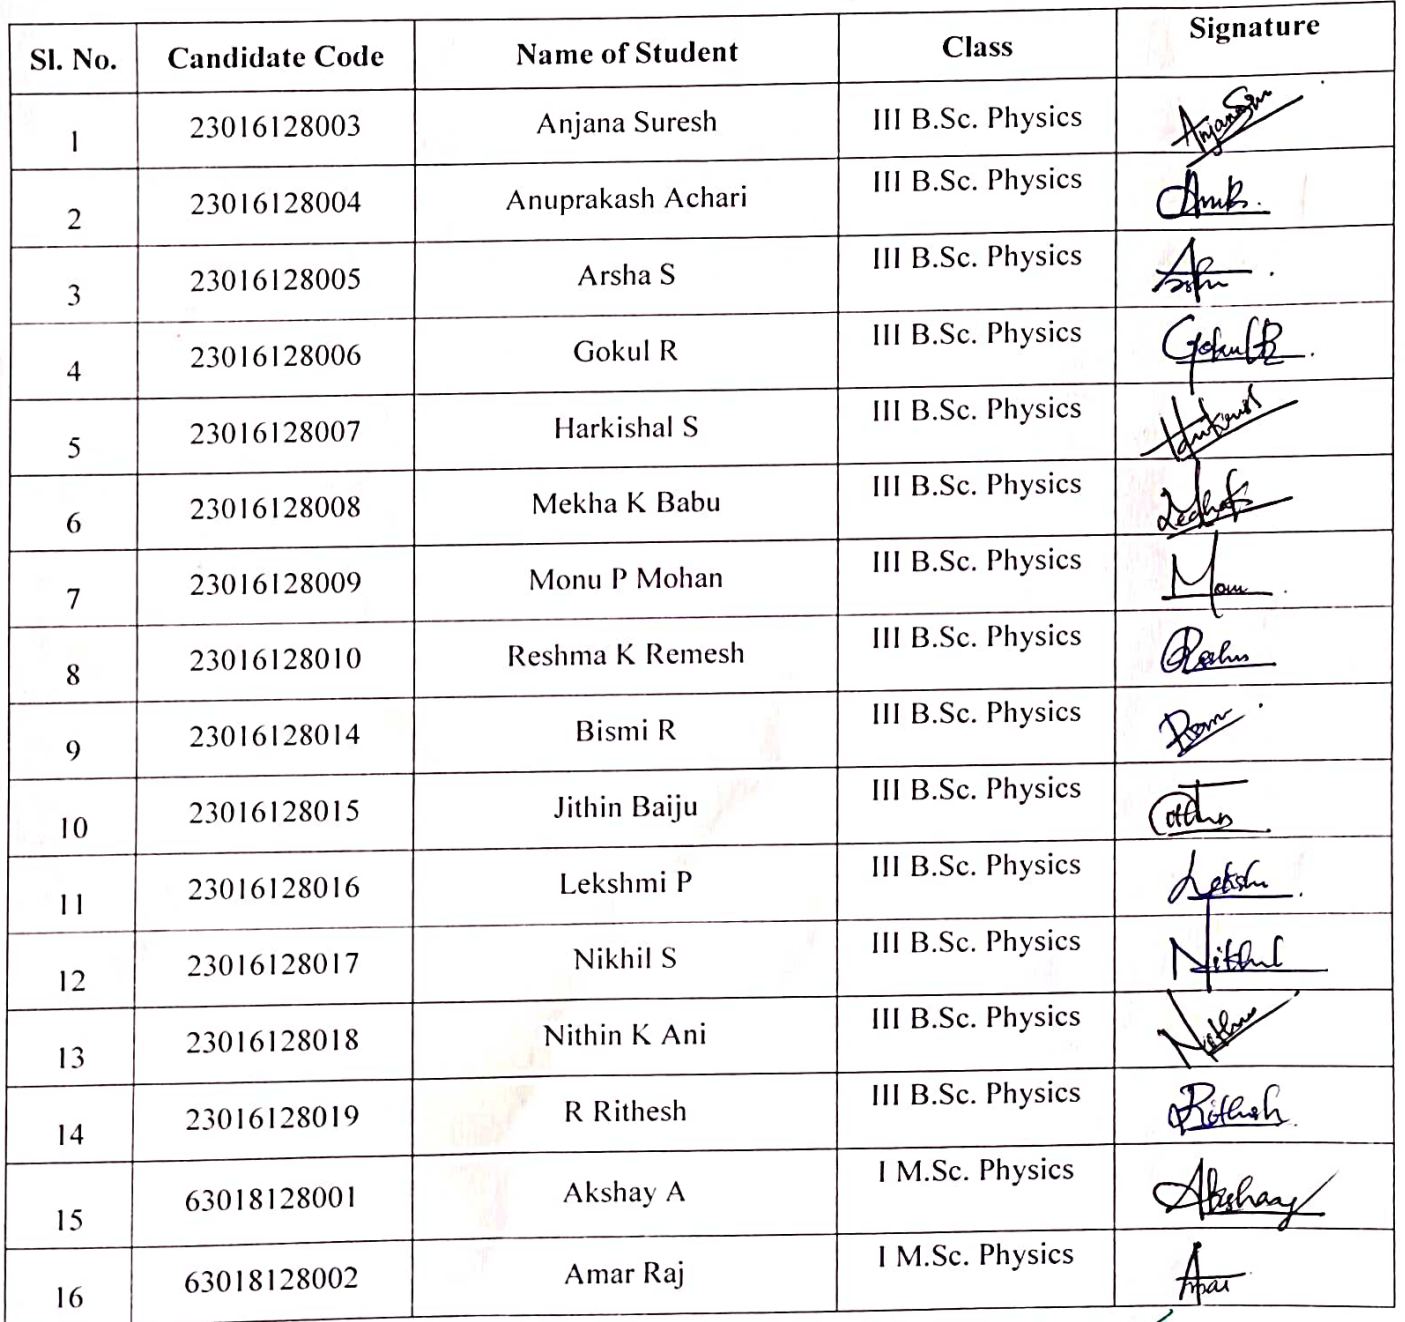 Sl. No. Candidate Code Name of Student Class Signature
1 23016128003 Anjana Suresh III B.Sc. Physics
2 23016128004 Anuprakash Achari III B.Sc. Physics
3 23016128005 Arsha S III B.Sc. Physics
4 23016128006 Gokul R III B.Sc. Physics Gokul R
5 23016128007 Harkishal S III B.Sc. Physics
6 23016128008 Mekha K Babu III B.Sc. Physics
7 23016128009 Monu P Mohan III B.Sc. Physics
8 23016128010 Reshma K Remesh III B.Sc. Physics
9 23016128014 Bismi R III B.Sc. Physics
10 23016128015 Jithin Baiju III B.Sc. Physics
11 23016128016 Lekshmi P III B.Sc. Physics
12 23016128017 Nikhil S III B.Sc. Physics Nikhil
13 23016128018 Nithin K Ani III B.Sc. Physics
14 23016128019 R Rithesh III B.Sc. Physics Rithesh
15 63018128001 Akshay A I M.Sc. Physics Akshay
16 63018128002 Amar Raj I M.Sc. Physics Amar